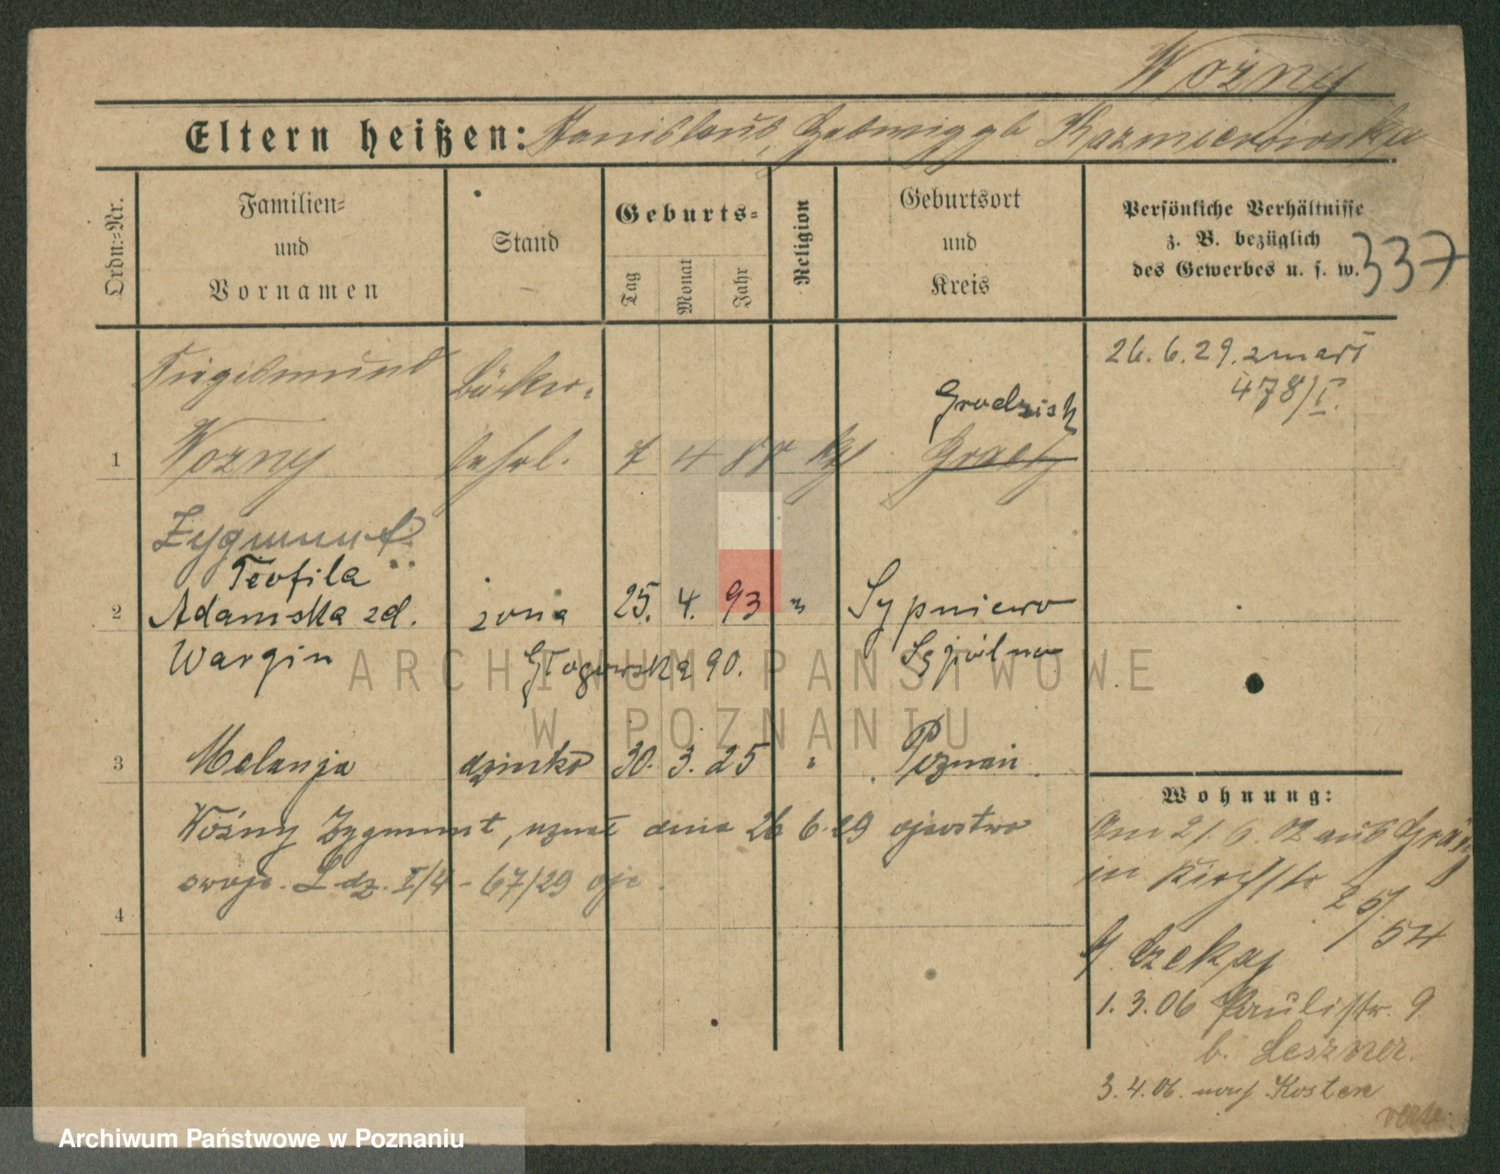 Woźny
Eltern heißen: Stanislaus, Hedwig gb Kazmierowska
337
Ordn.-Nr.
Familien- und Vornamen
Stand
Geburts-
Tag
Monat
Jahr
Religion
Geburtsort und Kreis
Persönliche Verhältnisse
z. B. bezüglich
des Gewerbes u. s. w.
Siegismund Bäcker-
26.6.29. zmarł
478/I.
Grodzisk
1 Wozny lehrl. 7 4 88 kg Graetz
Zygmunt
Teofila
2 Adamska zd. żona 25. 4. 93 " Sypniewo
Wargin Głogowska 90. Sępólno
3 Melanja dziecko 30. 3. 25 " Poznań.
Woźny Zygmunt, uznał dnia 26 6.29 ojcostwo
swoje. L. dz. I/4 - 67/29 ojc.
4
Wohnung:
Am 21.6.02 aus Grätz
in Kirchstr
25/54
b. Czekaj
1.3.06 Paulistr. 9
b. Leszner.
3.4.06. nach Kosten
verte
ARCHIWUM PAŃSTWOWE
W POZNANIU
Archiwum Państwowe w Poznaniu